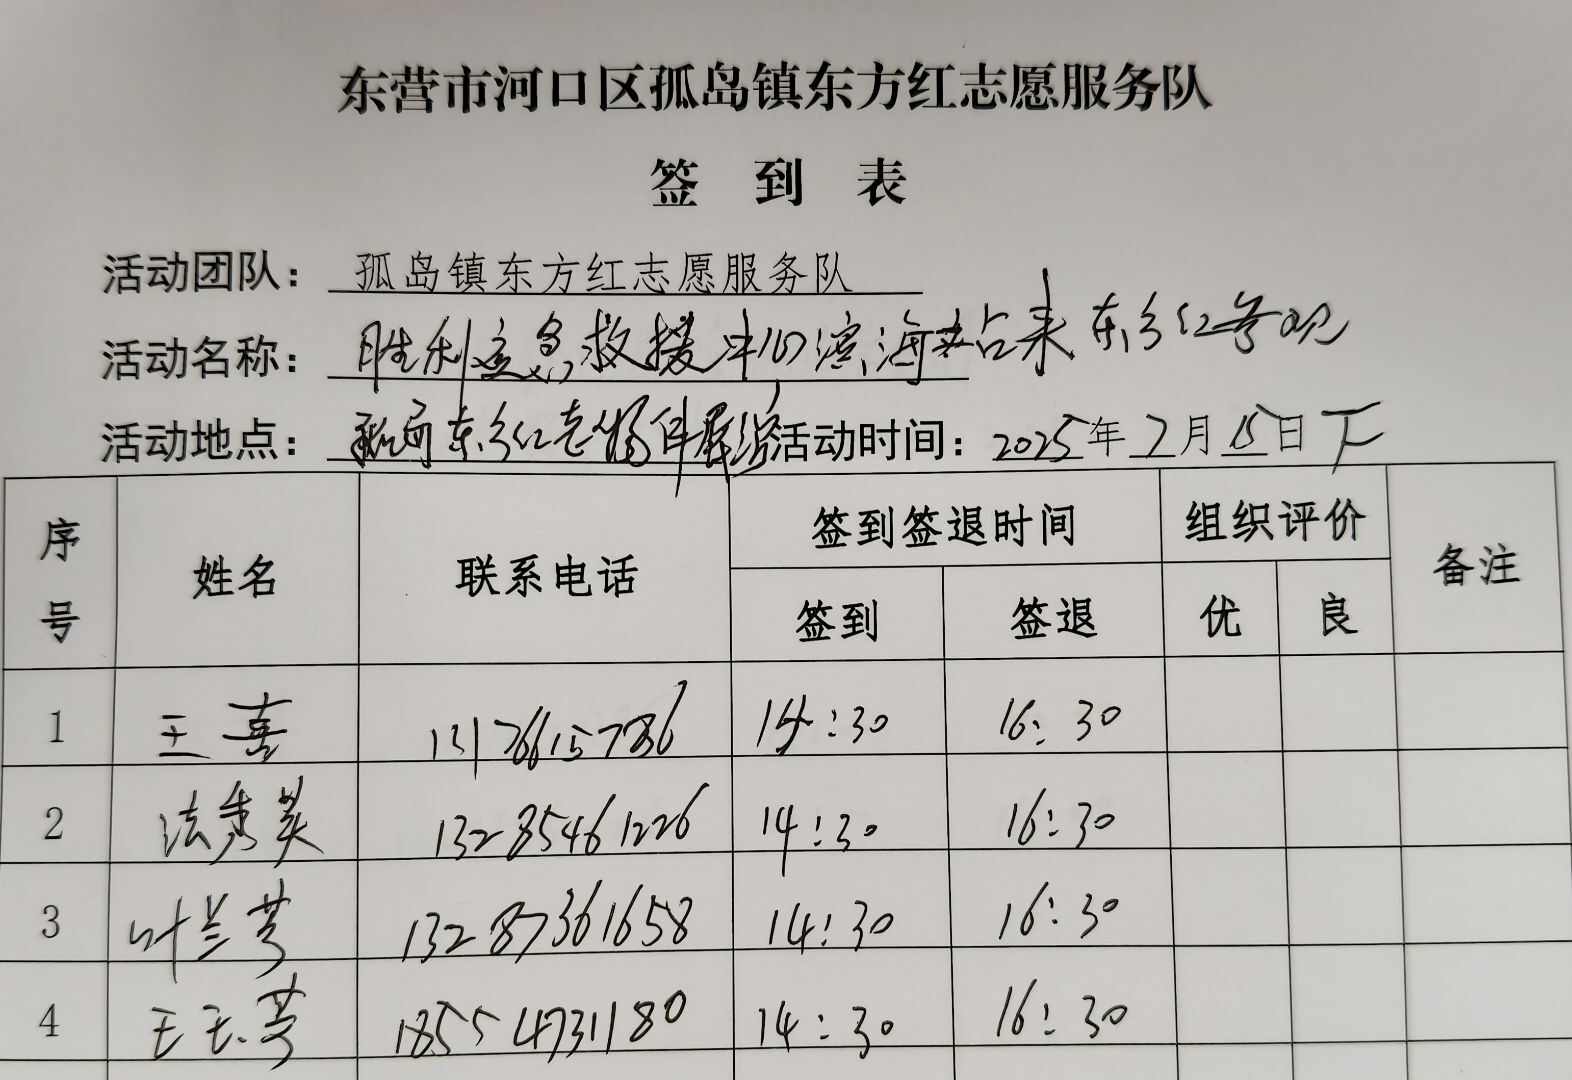 东营市河口区孤岛镇东方红志愿服务队
签 到 表
活动团队： 孤岛镇东方红志愿服务队
活动名称： 胜利应急救援中心滨海站来东方红参观
活动地点： 孤岛东方红志 活动时间： 2025年7月15日下
序号 姓名 联系电话 签到签退时间 组织评价 备注
签到 签退 优 良
1 王喜 13176615786 14:30 16:30
2 法秀英 13285461226 14:30 16:30
3 叶兰芳 13287361658 14:30 16:30
4 王玉芳 18554731180 14:30 16:30